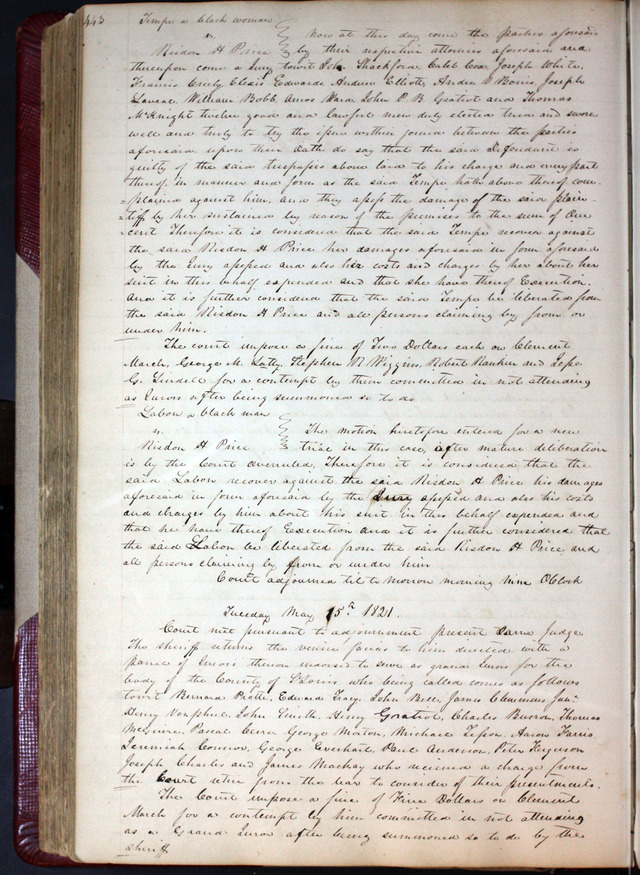 443
Tempe a black woman
vs. Now at this day come the parties aforesaid
Risdon H Price by their respective attornies aforesaid and
thereupon come a Jury towit Shackford Caleb Cox Joseph White,
Francis Creely Elexis Edwards Andrew Elliott, Andre Joseph
William Bobb, Amos Ward John P B Gratiot and Thomas
McKnight twelve good and lawful men duly elected tried and sworn
well and truly to try the issue within joined between the parties
aforesaid upon their Oath do say that the said defendant is
guilty of the said trespasses above laid to his charge and every part
thereof in manner and form as the said Tempe hath above thereof com-
-plained against him, and they assess the damage of the said plain-
-tiff by her sustained by reason of the premises to the sum of One
cent Therefore it is considered that the said Tempe recover against
the said Risdon H Price her damages aforesaid in form aforesaid
by the Jury assessed and also her costs and charges by her about her
suit in this behalf expended and that she have thereof Execution.
And it is further considered that the said Tempe be liberated from
the said Risdon H Price and all persons claiming by from or
under him.
The court impose a fine of Two Dollars each on Clement
March, George M. Stephen R Wiggins, Robert Rankin and Jesse
G. Lindell for a contempt by them committed in not attending
as Jurors after being summoned so to do
Labon a black man
vs. The motion heretofore entered for a new
Risdon H Price trial in this case, after mature deliberation
is by the Court overruled, Therefore it is considered that the
said Labon recover against the said Risdon H Price his damages
aforesaid in form aforesaid by the Jury assessed and also his costs
and charges by him about his suit in this behalf expended and
that he have thereof Execution and it is further considered that
the said Labon be liberated from the said Risdon H Price and
all persons claiming by from or under him
Court adjourned til to morrow morning nine OClock
Tuesday May 15th 1821.
Court met pursuant to adjournment present same Judge
The sheriff returns the venire facias to him directed with a
panel of Jurors thereon endorsed to serve as grand Jurors for the
body of the County of St Louis who being called comes as follows
towit Bernard Pratte, Edward Tracy, John Bell, James Clemens Junr
Henry Vonphul, John Smith, Henry Gratiot, Charles Burron, Thomas
McGuire, Pascal Cerre George Morton, Michael Aaron Farris
Jeremiah Connor, George Everhart, Paul Anderson, Peter Ferguson
Joseph Charles and James Mackay who received a charge from
the Court retire from the bar to consider of their presentments.
The Court impose a fine of Five Dollars on Clement
March for a contempt by him committed in not attending
as a Grand Juror after being summoned so to do by the
Sheriff